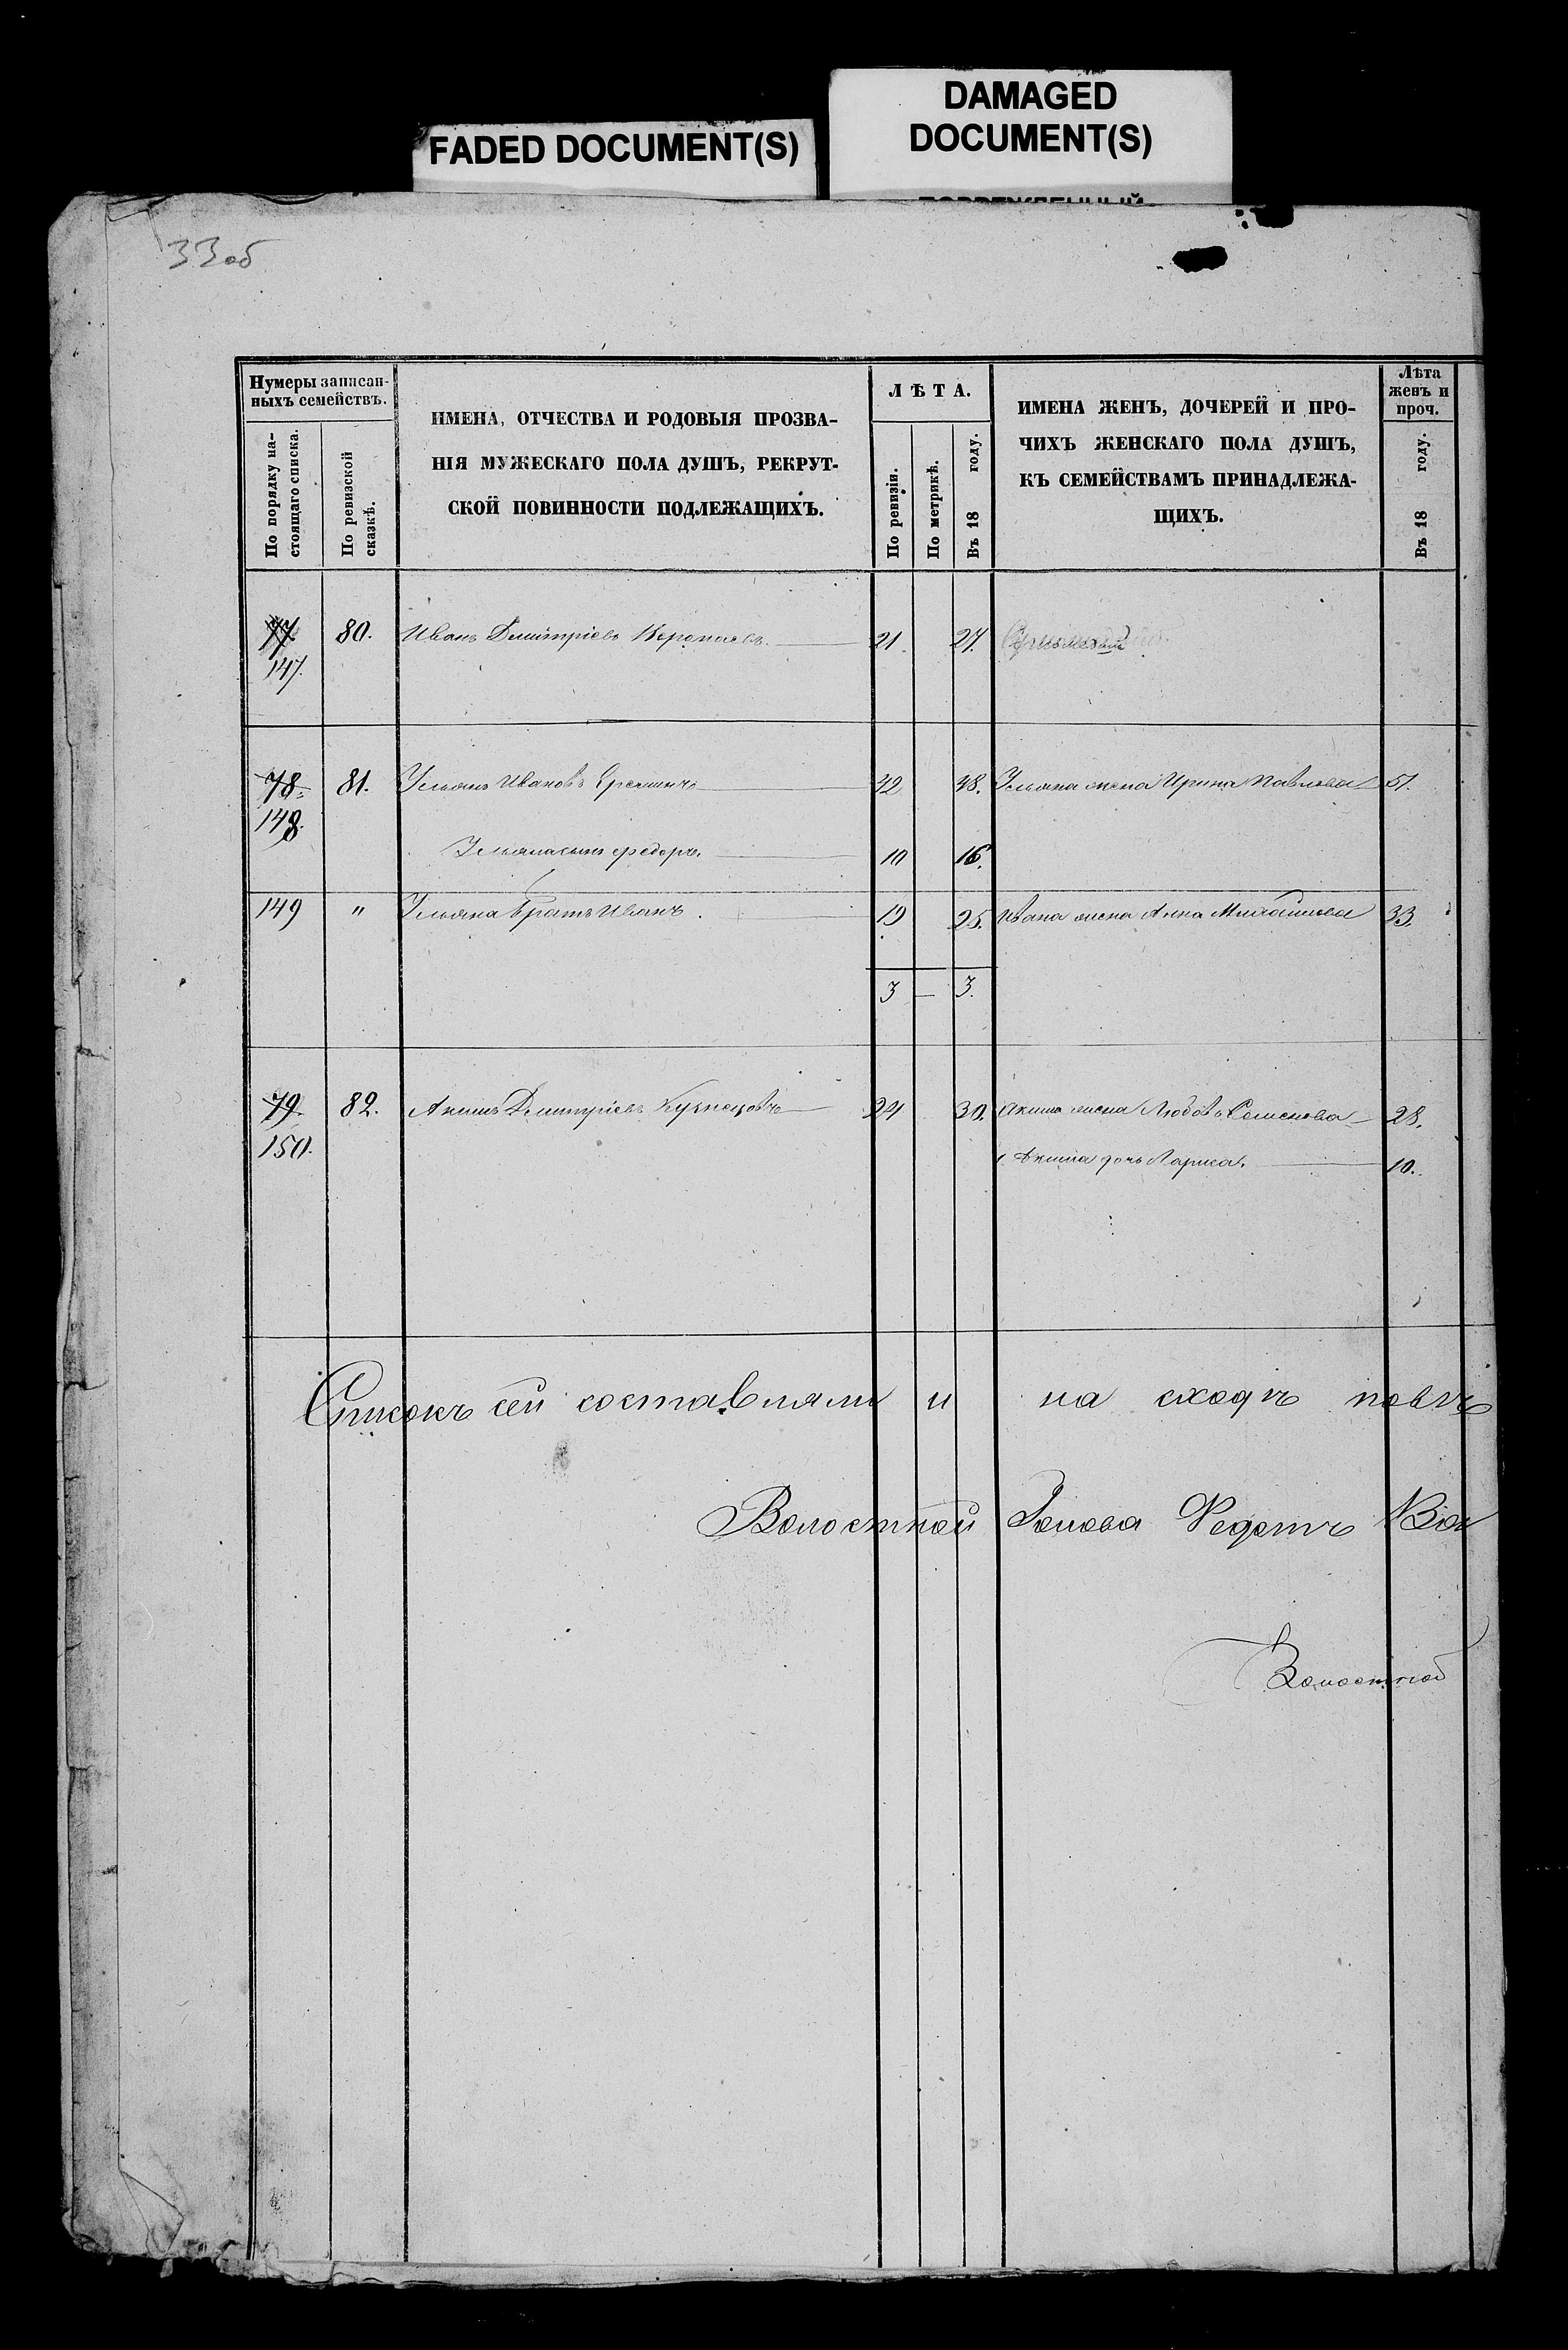 FADED DOCUMENT(S)
DAMAGED
DOCUMENT(S)
33 об
Нумеры записан-
ныхъ семействъ.
По порядку на-
стоящаго списка.
По ревизской
сказкѣ.
ИМЕНА, ОТЧЕСТВА И РОДОВЫЯ ПРОЗВА-
НІЯ МУЖЕСКАГО ПОЛА ДУШЪ, РЕКРУТ-
СКОЙ ПОВИННОСТИ ПОДЛЕЖАЩИХЪ.
ЛѢТА.
По ревизіи.
По метрикѣ.
Въ 18 году.
ИМЕНА ЖЕНЪ, ДОЧЕРЕЙ И ПРО-
ЧИХЪ ЖЕНСКАГО ПОЛА ДУШЪ,
КЪ СЕМЕЙСТВАМЪ ПРИНАДЛЕЖА-
ЩИХЪ.
Лѣта
женъ и
проч.
Въ 18 году.
77. 80. Иванъ Дмитріевъ 21. 27.
147.
78. 81. Ульянъ Ивановъ Ереминъ 42 48. Ульяна жена Ирина Павлова 51.
148.
Ульяна сынъ Федоръ. 10 16.
149 " Ульяна братъ Иванъ. 19 25. Ивана жена Анна Михайлова 33.
3 — 3.
79. 82. Акимъ Дмитріевъ Кузнецовъ 24 30. Акима жена Любовь Семенова 28.
150. Акима дочь Лариса. 10.
Списокъ сей составляли и на сходѣ повѣ
Волостной Голова Федотъ
Волостной